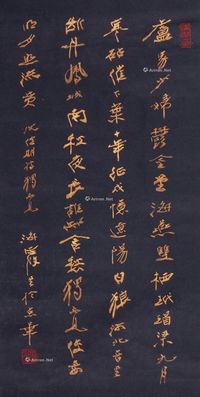 盧家少婦鬱金堂海燕雙栖玳瑁梁九月
寒砧催下葉十年征戍憶遼陽白狼河北音書
斷丹鳳城南秋夜長誰含愁獨不見使妾
明月照流黃 沈佺期詩獨不見